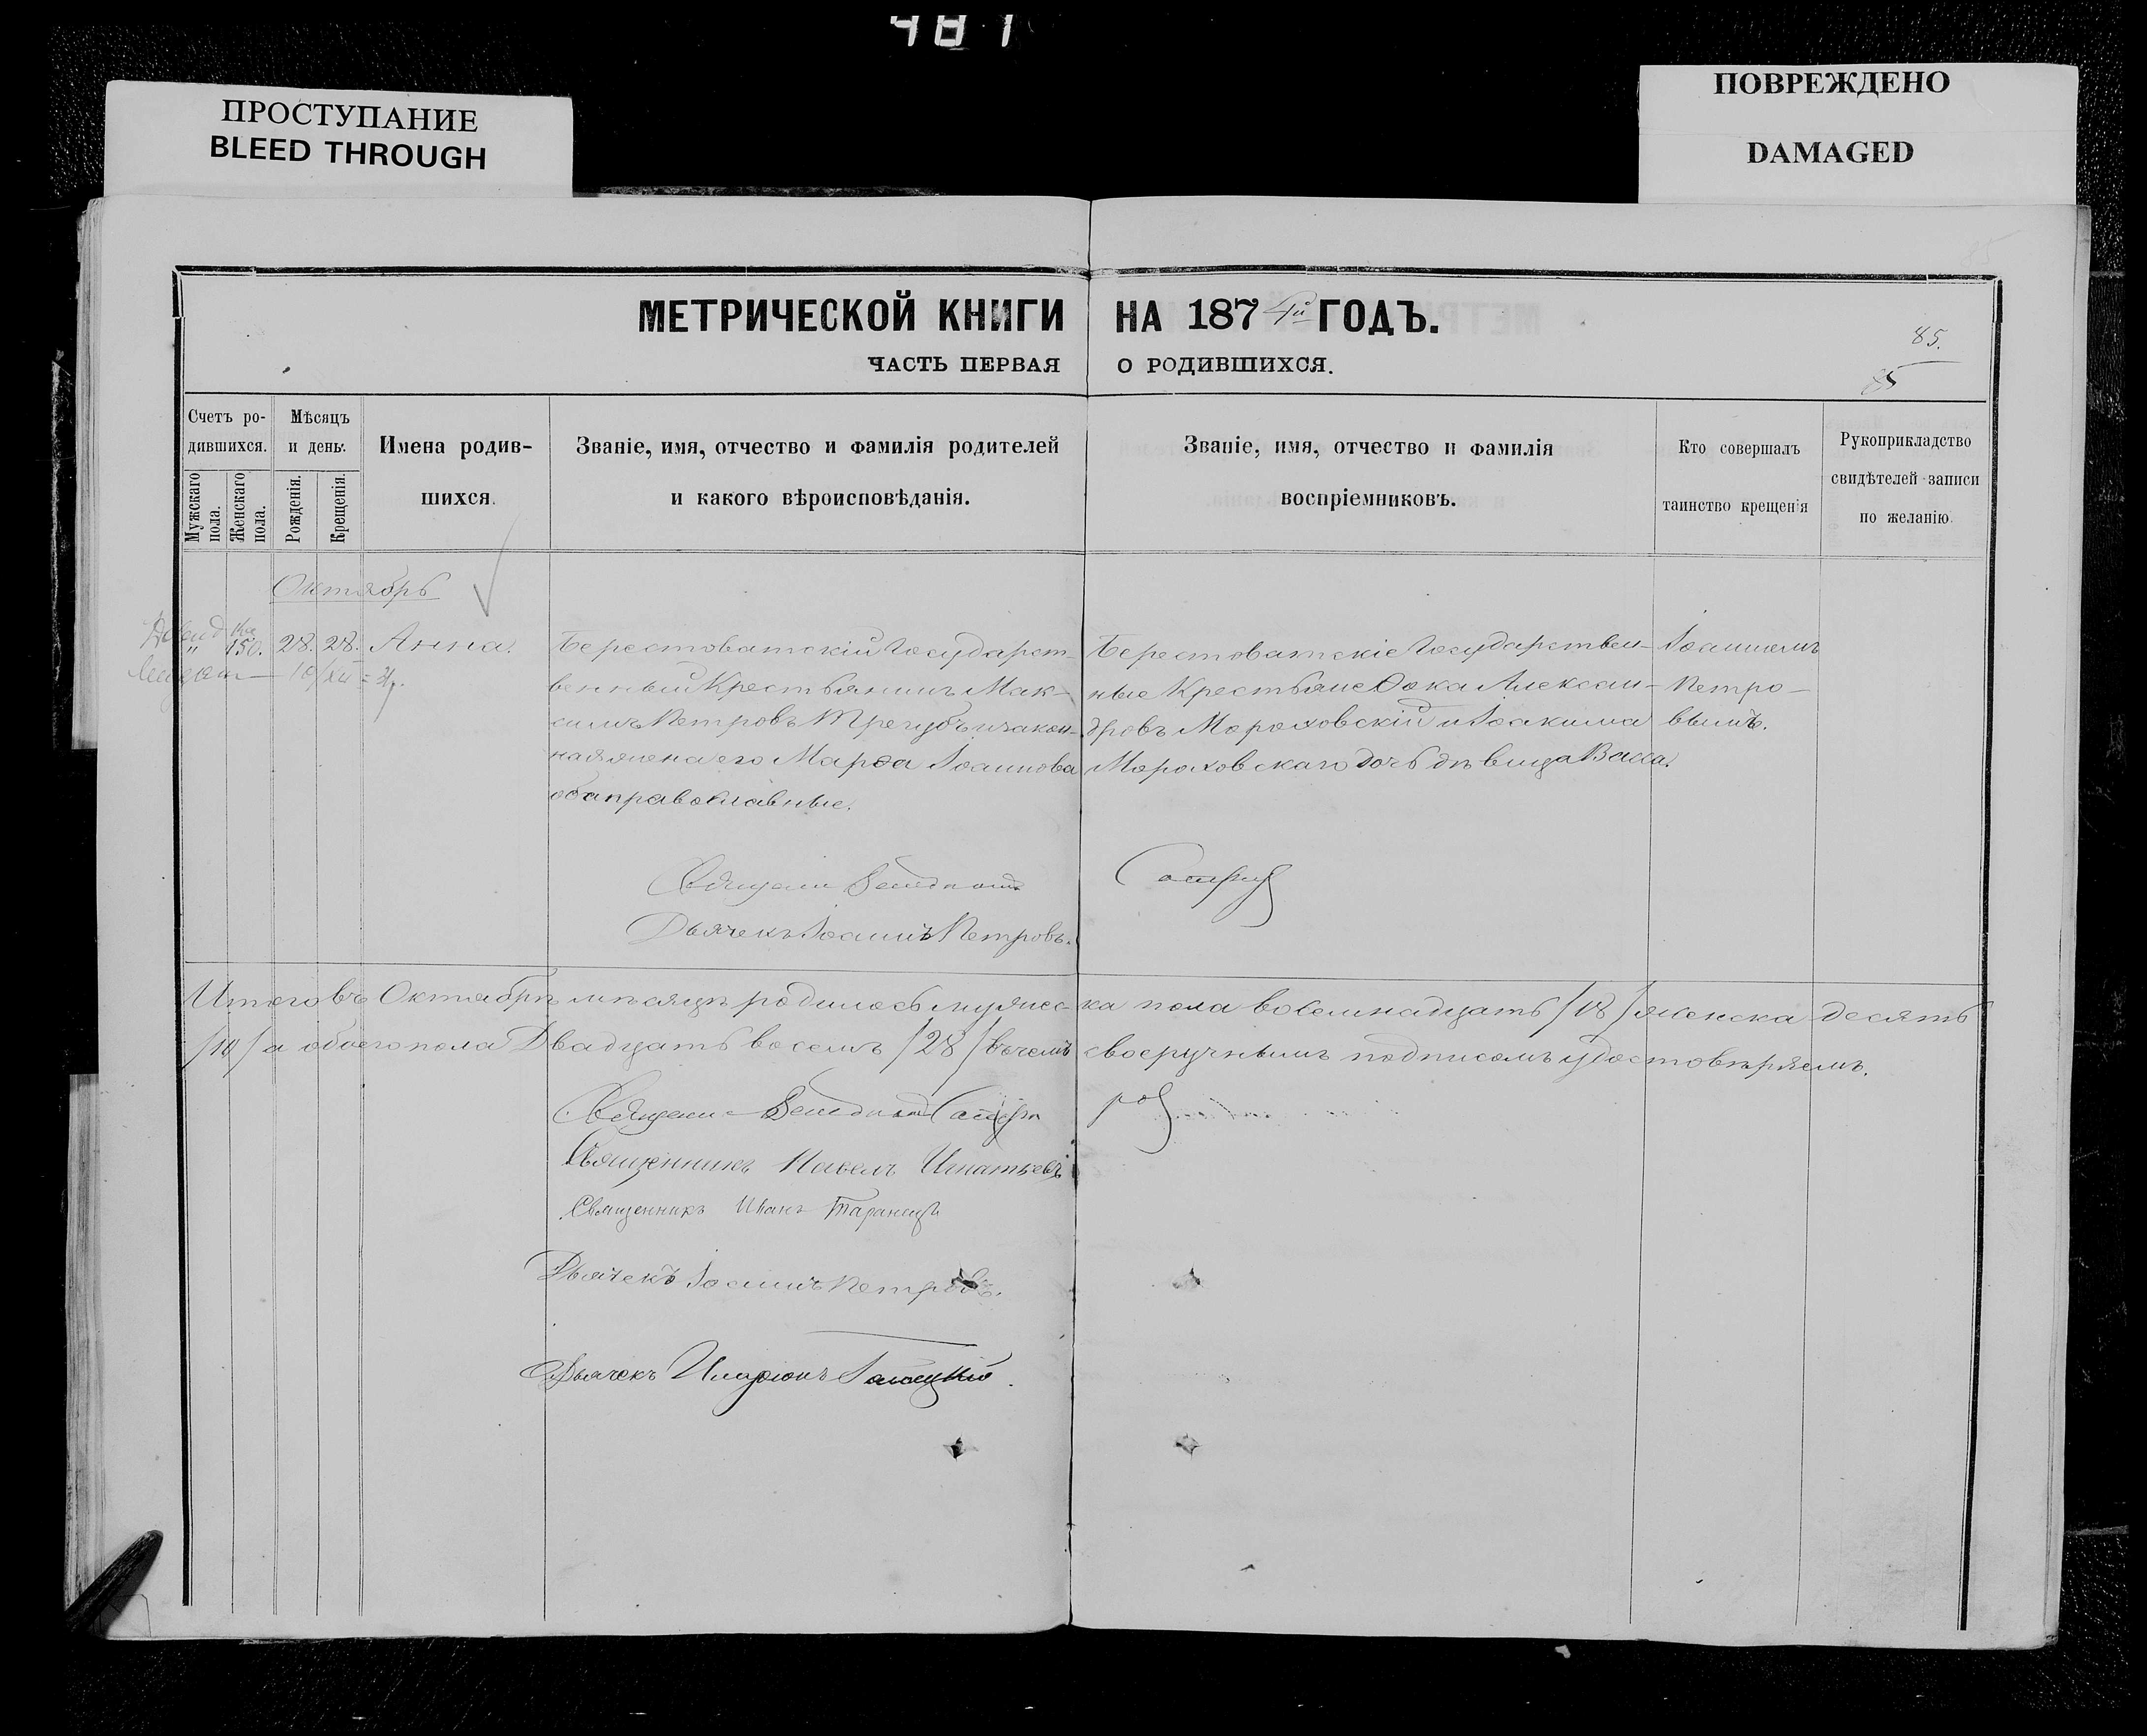 481
ПРОСТУПАНИЕ
BLEED THROUGH
ПОВРЕЖДЕНО
DAMAGED
МЕТРИЧЕСКОЙ КНИГИ НА 1874й ГОДЪ.
85.
ЧАСТЬ ПЕРВАЯ О РОДИВШИХСЯ.
85
Счетъ ро-
дившихся.
Мужскаго пола.
Женскаго пола.
Мѣсяцъ
и день.
Рожденія.
Крещенія.
Имена родив-
шихся.
Званіе, имя, отчество и фамилія родителей
и какого вѣроисповѣданія.
Званіе, имя, отчество и фамилія
воспріемниковъ.
Кто совершалъ
таинство крещенія
Рукоприкладство
свидѣтелей записи
по желанію.
Октябрь
" 150. 28. 28. Анна.
Берестоватскій Государст-
венный Крестьянинъ Мак-
симъ Петровъ Трегубъ и закон-
ная жена его Марѳа Іоаннова
оба православные.
Берестоватскіе Государствен-
ные Крестьяне Ѳока Алексан-
дровъ Мороховскій и Іоакима
Мороховскаго дочь дѣвица Васса.
Іоанномъ
Петро-
вымъ.
Дьячекъ Іоаннъ Петровъ.
Итого въ Октябрѣ мѣсяцѣ родилось мужес- ка пола восемнадцать /18/ женска десять
/10/ а обоего пола Двадцать восемь /28/ въ чемъ своеручнымъ подписомъ удостовѣряемъ.
Священникъ Павелъ Игнатьевъ
Священникъ Иванъ Таранецъ
Дьячекъ Іоаннъ Петровъ.
Дьячекъ Иларіонъ